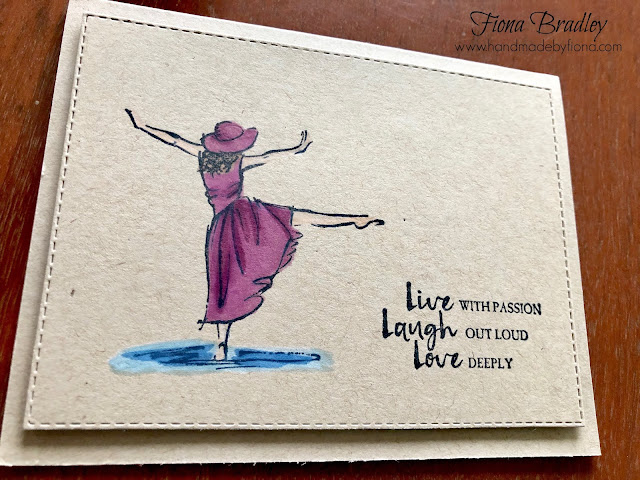 Fiona Bradley
www.handmadebyfiona.com
Live WITH PASSION
Laugh OUT LOUD
Love DEEPLY